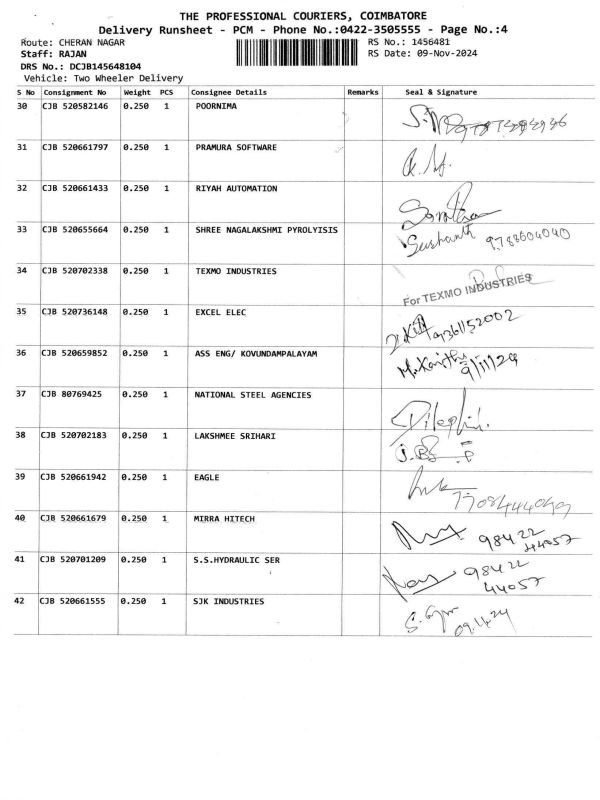 THE PROFESSIONAL COURIERS, COIMBATORE
Delivery Runsheet - PCM - Phone No.:0422-3505555 - Page No.:4
Route: CHERAN NAGAR RS No.: 1456481
Staff: RAJAN RS Date: 09-Nov-2024
DRS No.: DCJB145648104
Vehicle: Two Wheeler Delivery
S No Consignment No Weight PCS Consignee Details Remarks Seal & Signature
30 CJB 520582146 0.250 1 POORNIMA
31 CJB 520661797 0.250 1 PRAMURA SOFTWARE
32 CJB 520661433 0.250 1 RIYAH AUTOMATION
33 CJB 520655664 0.250 1 SHREE NAGALAKSHMI PYROLYISIS Sushanth 9788604040
34 CJB 520702338 0.250 1 TEXMO INDUSTRIES For TEXMO INDUSTRIES
35 CJB 520736148 0.250 1 EXCEL ELEC 9361152002
36 CJB 520659852 0.250 1 ASS ENG/ KOVUNDAMPALAYAM 9/11/24
37 CJB 80769425 0.250 1 NATIONAL STEEL AGENCIES
38 CJB 520702183 0.250 1 LAKSHMEE SRIHARI
39 CJB 520661942 0.250 1 EAGLE
40 CJB 520661679 0.250 1 MIRRA HITECH 98422
44057
41 CJB 520701209 0.250 1 S.S.HYDRAULIC SER 98422
44057
42 CJB 520661555 0.250 1 SJK INDUSTRIES